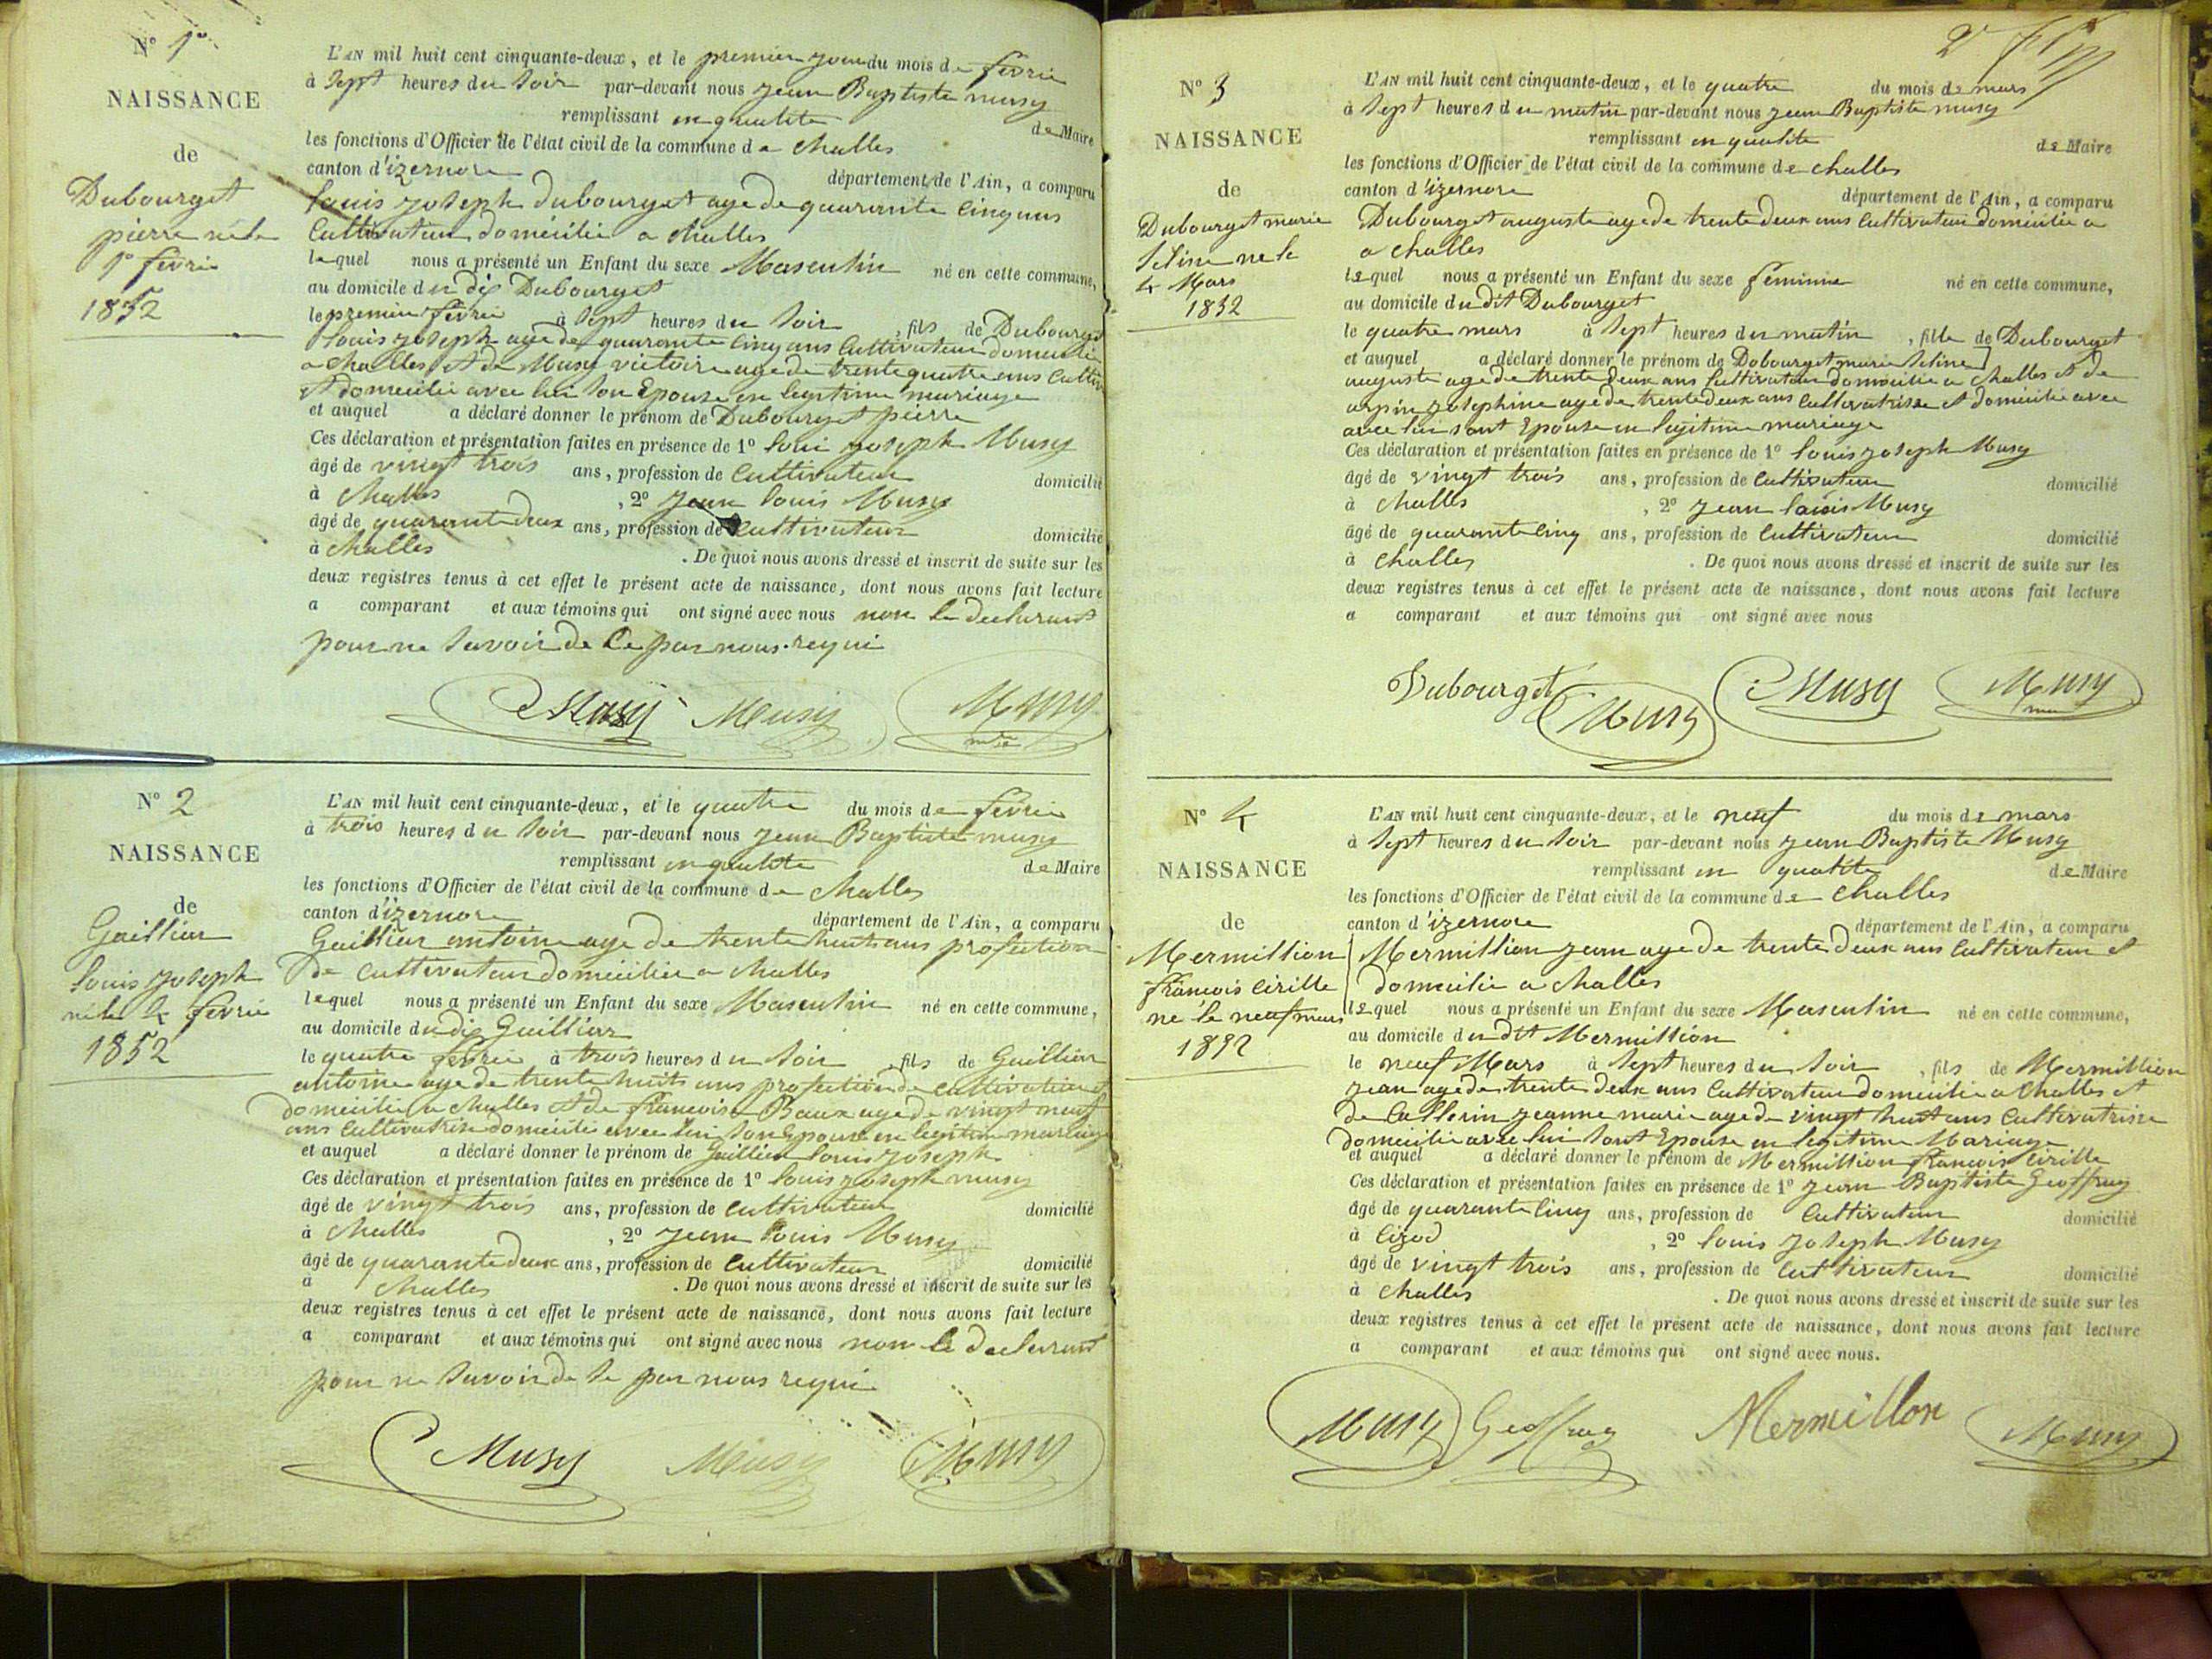 N° 1°
NAISSANCE
de
Dubourget
pierre né le
1° févrie
1852
L'AN mil huit cent cinquante-deux, et le premier jour du mois de févrie
à sept heures du soir par-devant nous jean Baptiste musy
remplissant en qualité de Maire
les fonctions d'Officier de l'état civil de la commune de challes
canton d'izernore département de l'Ain, a comparu
louis joseph dubourget age de quarante cinq ans
Cultivateur domicilié a challes
lequel nous a présenté un Enfant du sexe Masculin né en cette commune,
au domicile du dit Dubourget
le premier févrie à sept heures du soir, fils de Dubourget
louis joseph age de quarante cinq ans Cultivateur domicilié
a challes et de Musy victoire age de trente quatre ans Cultiv
et domicilié avec lui son Epouse en legitime mariage
et auquel a déclaré donner le prénom de Dubourget pierre
Ces déclaration et présentation faites en présence de 1° loui joseph Musy
âgé de vingt trois ans, profession de Cultivateur domicilié
à challes, 2° jean louis Musy
âgé de quarante deux ans, profession de Cultivateur domicilié
à challes. De quoi nous avons dressé et inscrit de suite sur les
deux registres tenus à cet effet le présent acte de naissance, dont nous avons fait lecture
a comparant et aux témoins qui ont signé avec nous non le declarant
pour ne savoir de Ce par nous requi
Musy Musy Musy
N° 2
NAISSANCE
de
Gaillier
louis joseph
né le 4 févrie
1852
L'AN mil huit cent cinquante-deux, et le quatre du mois de févrie
à trois heures du soir par-devant nous jean Baptiste musy
remplissant en qualité de Maire
les fonctions d'Officier de l'état civil de la commune de challes
canton d'izernore département de l'Ain, a comparu
Gaillier antoine age de trente huit ans profession
de Cultivateur domicilié a challes
lequel nous a présenté un Enfant du sexe Masculin né en cette commune,
au domicile du dit Gaillier
le quatre févrie à trois heures du soir, fils de Gaillier
antoine age de trente huits ans profection de cultivateur et
domicilié a challes et de francoise Baux age de vingt neuf
ans Cultivatrise domicilié avec lui son Epouse en legitime mariage
et auquel a déclaré donner le prénom de Gaillier louis joseph
Ces déclaration et présentation faites en présence de 1° louis joseph musy
âgé de vingt trois ans, profession de cultivateur domicilié
à challes, 2° jean louis Musy
âgé de quarante deux ans, profession de Cultivateur domicilié
à challes. De quoi nous avons dressé et inscrit de suite sur les
deux registres tenus à cet effet le présent acte de naissance, dont nous avons fait lecture
a comparant et aux témoins qui ont signé avec nous non le declarant
pour ne savoir de se par nous requi
Musy Musy Musy
N° 3
NAISSANCE
de
Dubourget marie
seline ne le
4 Mars
1852
L'AN mil huit cent cinquante-deux, et le quatre du mois de mars
à sept heures du matin par-devant nous jean Baptiste musy
remplissant en qualité de Maire
les fonctions d'Officier de l'état civil de la commune de challes
canton d'izernore département de l'Ain, a comparu
Dubourget auguste age de trente deux ans Cultivateur domicilié a
a challes
lequel nous a présenté un Enfant du sexe féminin né en cette commune,
au domicile du dit Dubourget
le quatre mars à sept heures du matin, fille de Dubourget
et auquel a déclaré donner le prénom de Dobourget marie seline]
auguste age de trente deux ans Cultivateur domicilié a challes et de
arpin josephine age de trente deux ans Cultivatrisse et domicilié avec
avec lui sont Epouse en legitime mariage
Ces déclaration et présentation faites en présence de 1° louis joseph Musy
âgé de vingt trois ans, profession de Cultivateur domicilié
à challes, 2° jean louis Musy
âgé de quarante cinq ans, profession de Cultivateur domicilié
à challes. De quoi nous avons dressé et inscrit de suite sur les
deux registres tenus à cet effet le présent acte de naissance, dont nous avons fait lecture
a comparant et aux témoins qui ont signé avec nous
Dubourget Musy Musy Musy
N° 4
NAISSANCE
de
Mermillion
francois Cirille
ne le neuf mars
1892
L'AN mil huit cent cinquante-deux, et le neuf du mois de mars
à sept heures du soir par-devant nous jean Baptiste Musy
remplissant en qualité de Maire
les fonctions d'Officier de l'état civil de la commune de Challes
canton d'izernore département de l'Ain, a comparu
Mermillion jean age de trente deux ans Cultivateur et
domicilié a challes
lequel nous a présenté un Enfant du sexe Masculin né en cette commune,
au domicile du dit Mermillion
le neuf Mars à sept heures du soir, fils de Mermillion
jean age de trente deux ans Cultivateur domicilié a Challes et
de Callerin jeanne marie age de vingt huit ans Cultivatrise
domicilié avec lui sont Epouse en legitime Mariage
et auquel a déclaré donner le prénom de Mermillion francois Cirille
Ces déclaration et présentation faites en présence de 1° jean Baptiste Geoffray
âgé de quarante cinq ans, profession de Cultivateur domicilié
à Cizod, 2° louis joseph Musy
âgé de vingt trois ans, profession de Cultivateur domicilié
à challes. De quoi nous avons dressé et inscrit de suite sur les
deux registres tenus à cet effet le présent acte de naissance, dont nous avons fait lecture
a comparant et aux témoins qui ont signé avec nous.
Musy Geoffray Mermillon Musy